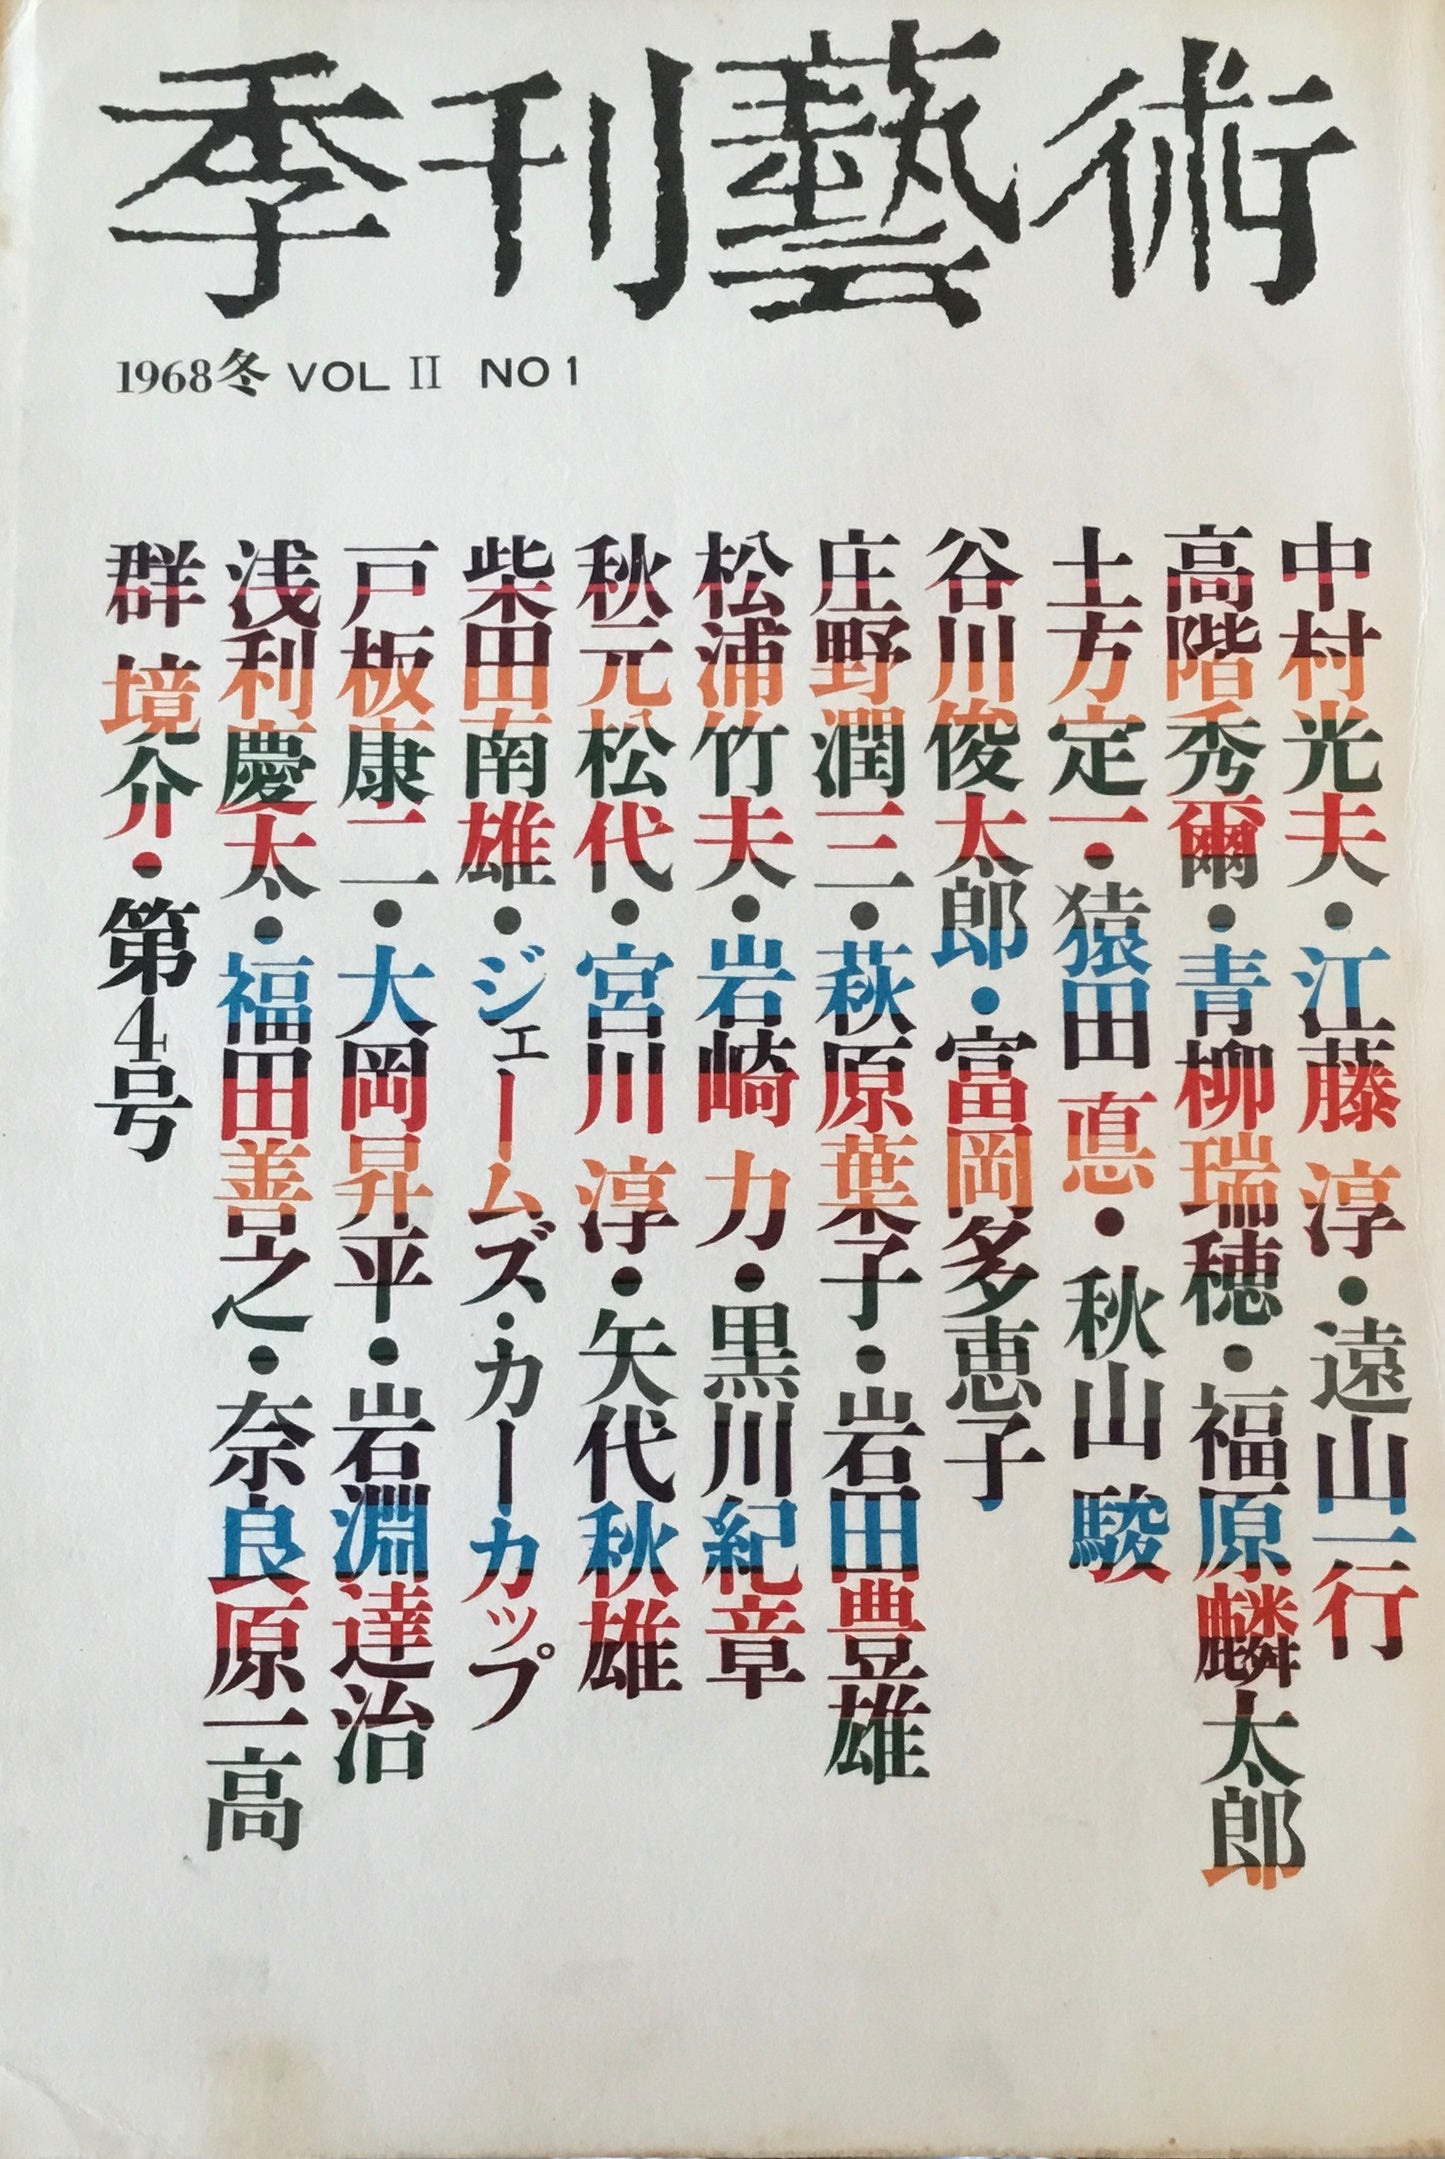 季刊藝術
1968冬 VOL II NO 1
中村光夫・江藤 淳・遠山一行
高階秀爾・青柳瑞穂・福原麟太郎
土方定一・猿田 悳・秋山 駿
谷川俊太郎・富岡多恵子
庄野潤三・萩原葉子・岩田豊雄
松浦竹夫・岩崎 力・黒川紀章
秋元松代・宮川 淳・矢代秋雄
柴田南雄・ジェームズ・カーカップ
戸板康二・大岡昇平・岩淵達治
浅利慶太・福田善之・奈良原一高
群 境介・第4号